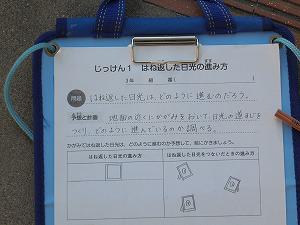 じっけん1 はね返した日光の進み方
3年 組 番( )
問題 はね返した日光は、どのように進むのだろう。
予想と計画 地面の近くにかがみをおいて、日光の道すじを
つくり、どのように進んでいるのか調べる。
かがみではね返した日光は、どのように進むのか予想して、絵にかきましょう。
はね返した日光の進み方 はね返した日光をつないだときの進み方